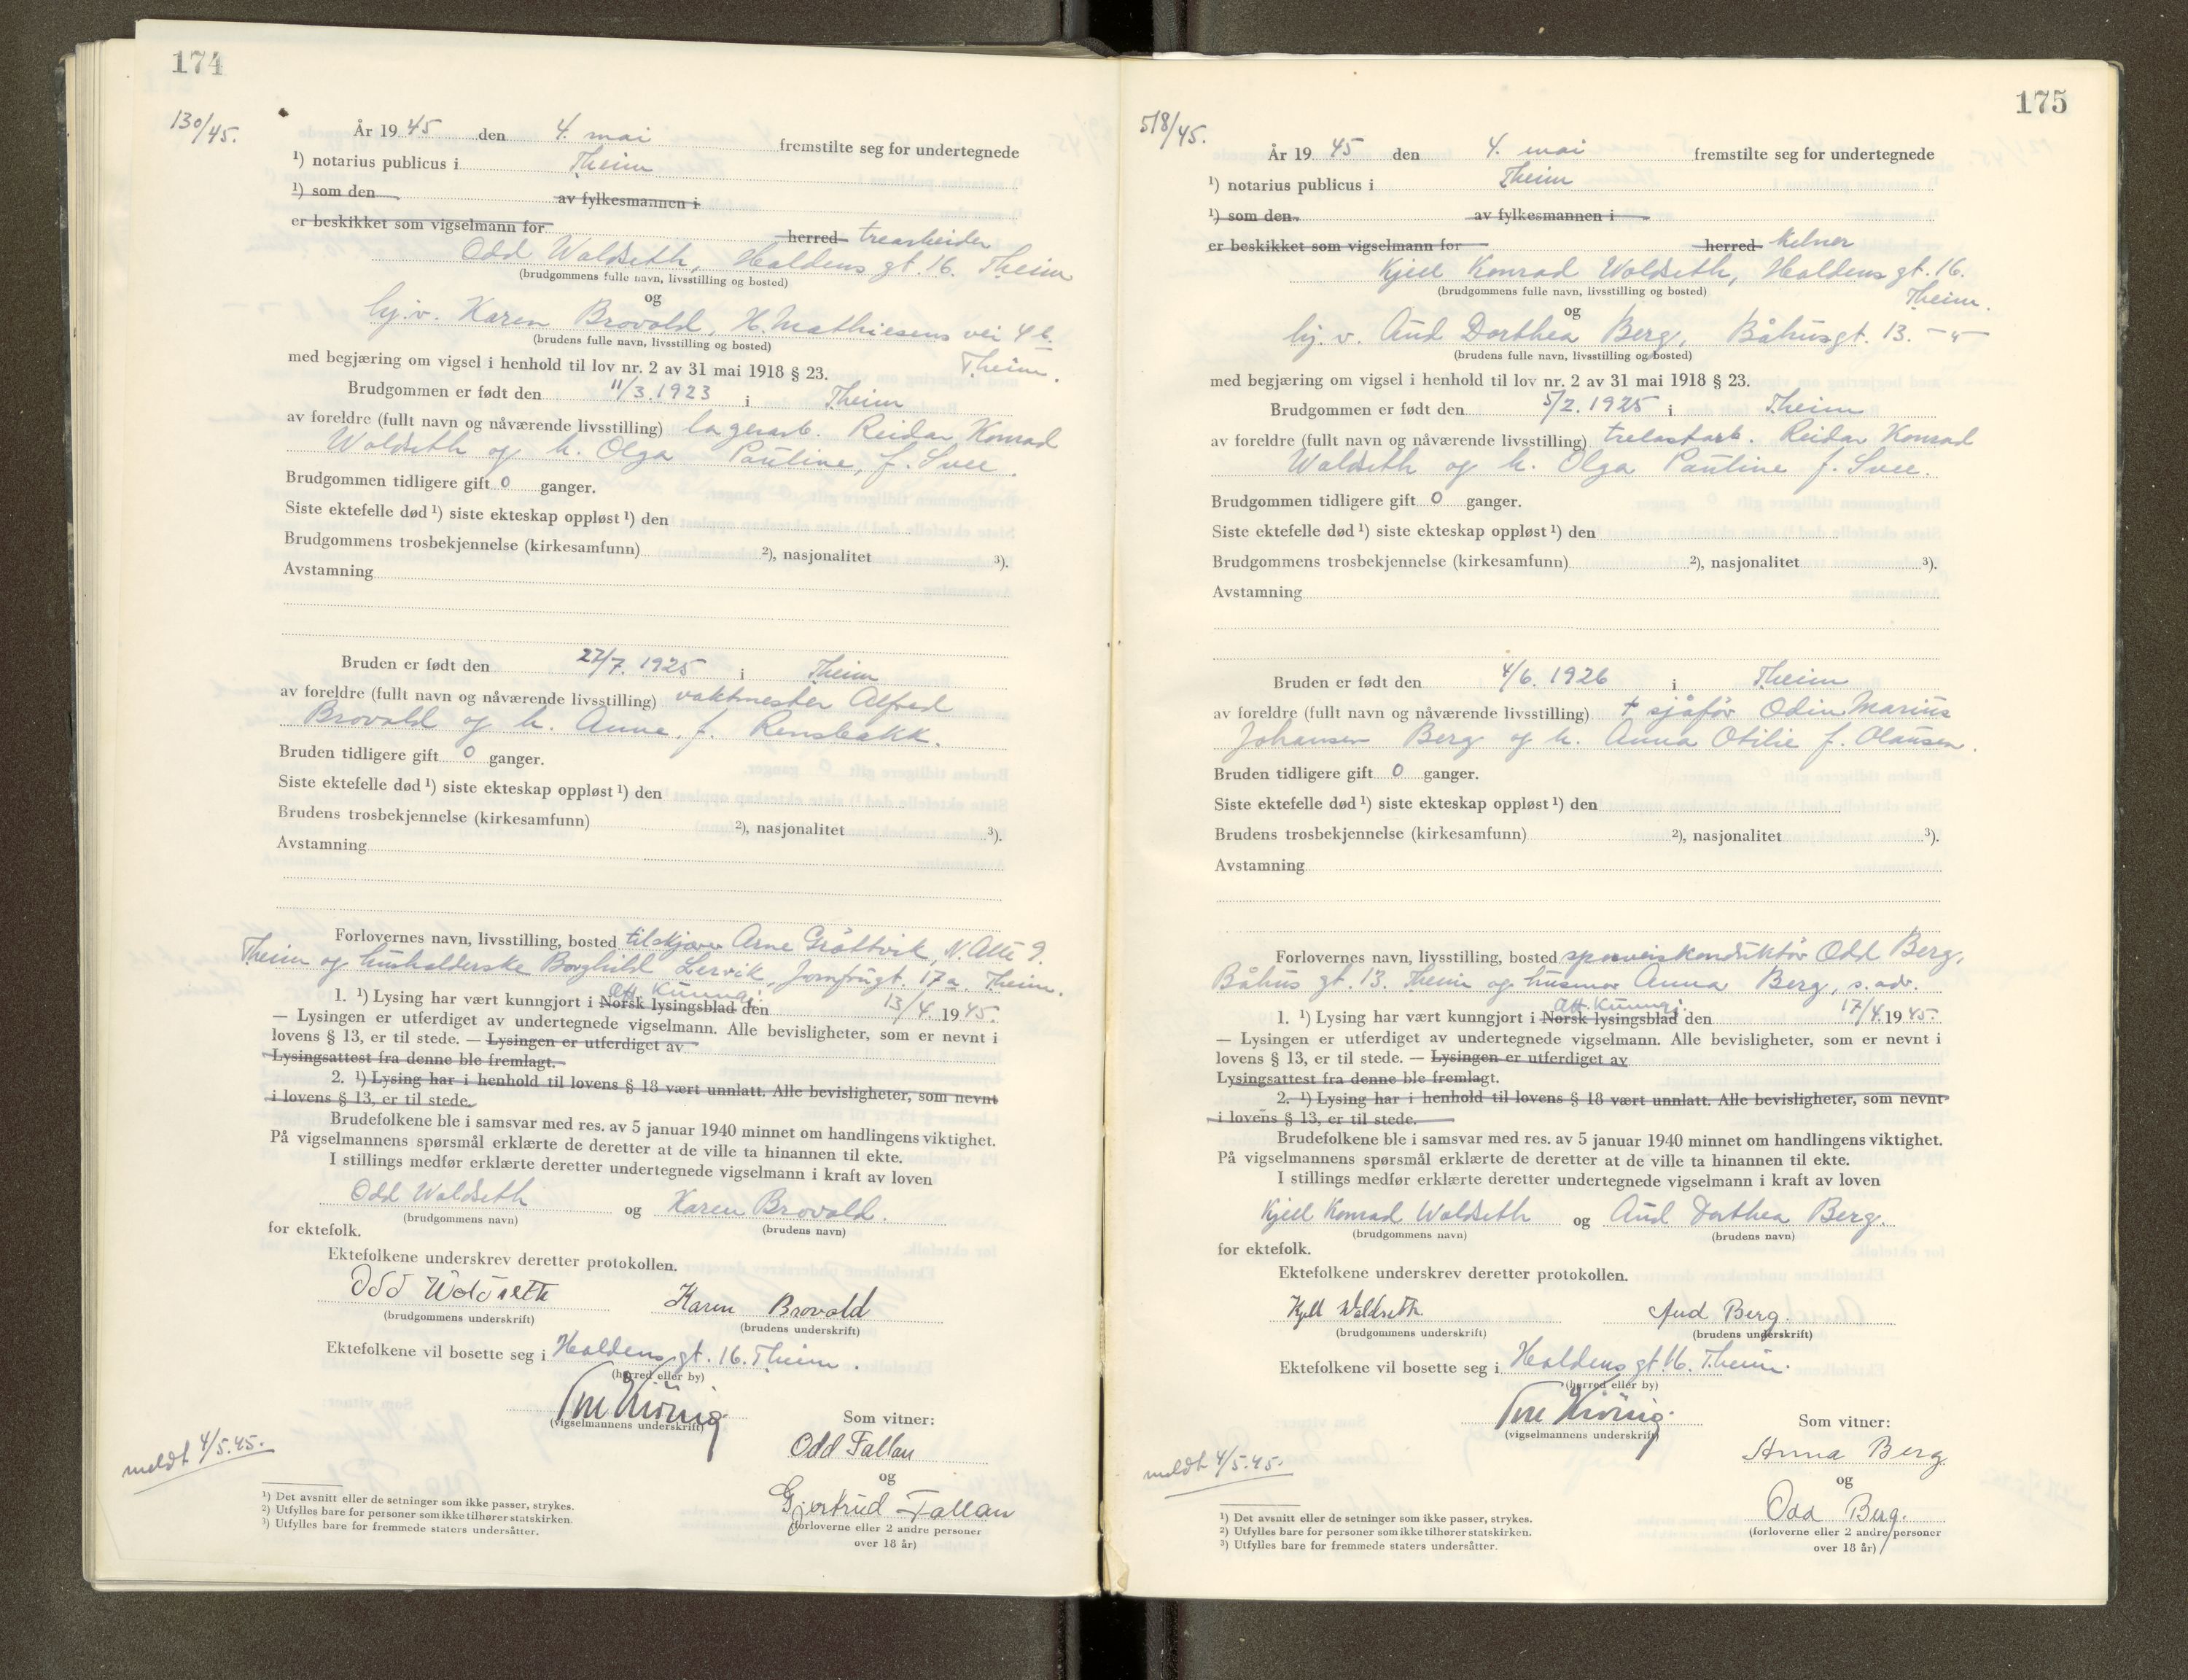 174
130/45.
År 1945 den 4. mai fremstilte seg for undertegnede
¹) notarius publicus i Theim
¹) som den av fylkesmannen i
er beskikket som vigselmann for herred trearbeider
Odd Woldseth, Haldens gt. 16. Theim
(brudgommens fulle navn, livsstilling og bosted)
og
hj.v. Karen Brovold, H. Mathiesens vei 4 b.
(brudens fulle navn, livsstilling og bosted)
Theim.
med begjæring om vigsel i henhold til lov nr. 2 av 31 mai 1918 § 23.
Brudgommen er født den 11/3. 1923 i Theim
av foreldre (fullt navn og nåværende livsstilling) lagerarb. Reidar Konrad
Woldseth og h. Olga Pauline, f. Svee.
Brudgommen tidligere gift 0 ganger.
Siste ektefelle død ¹) siste ekteskap oppløst ¹) den
Brudgommens trosbekjennelse (kirkesamfunn) ²), nasjonalitet ³).
Avstamning
Bruden er født den 27/7. 1925 i Theim
av foreldre (fullt navn og nåværende livsstilling) vaktmester Alfred
Brovold og h. Anna. f. Rensbakk.
Bruden tidligere gift 0 ganger.
Siste ektefelle død ¹) siste ekteskap oppløst ¹) den
Brudens trosbekjennelse (kirkesamfunn) ²), nasjonalitet ³).
Avstamning
Forlovernes navn, livsstilling, bosted tilskjærer Arne Gråttvik, N. Alle 9.
Theim og husholderske Borghild Lervik, Jomfrugt. 17a. Theim.
Off. Kunngj.
1. ¹) Lysing har vært kunngjort i Norsk lysingsblad den 13/4. 1945.
— Lysingen er utferdiget av undertegnede vigselmann. Alle bevisligheter, som er nevnt i
lovens § 13, er til stede. — Lysingen er utferdiget av
Lysingsattest fra denne ble fremlagt.
2. ¹) Lysing har i henhold til lovens § 18 vært unnlatt. Alle bevisligheter, som nevnt
i lovens § 13, er til stede.
Brudefolkene ble i samsvar med res. av 5 januar 1940 minnet om handlingens viktighet.
På vigselmannens spørsmål erklærte de deretter at de ville ta hinannen til ekte.
I stillings medfør erklærte deretter undertegnede vigselmann i kraft av loven
Odd Woldseth og Karen Brovold.
(brudgommens navn) (brudens navn)
for ektefolk.
Ektefolkene underskrev deretter protokollen.
Odd Woldseth Karen Brovold
(brudgommens underskrift) (brudens underskrift)
Ektefolkene vil bosette seg i Haldens gt. 16. Theim.
(herred eller by)
(vigselmannens underskrift)
Som vitner:
Odd Fallan
og
Gjertrud Fallan
(forloverne eller 2 andre personer
over 18 år)
meldt 4/5.45.
¹) Det avsnitt eller de setninger som ikke passer, strykes.
²) Utfylles bare for personer som ikke tilhører statskirken.
³) Utfylles bare for fremmede staters undersåtter.
175
518/45.
År 1945 den 4. mai fremstilte seg for undertegnede
¹) notarius publicus i Theim
¹) som den av fylkesmannen i
er beskikket som vigselmann for herred kelner
Kjell Konrad Woldseth, Haldens gt. 16.
(brudgommens fulle navn, livsstilling og bosted)
Theim.
og
hj. v. Aud Dorthea Berg, Båhusgt. 13. — " —
(brudens fulle navn, livsstilling og bosted)
med begjæring om vigsel i henhold til lov nr. 2 av 31 mai 1918 § 23.
Brudgommen er født den 5/2. 1925 i Theim
av foreldre (fullt navn og nåværende livsstilling) trelastarb. Reidar Konrad
Woldseth og h. Olga Pauline f. Svee.
Brudgommen tidligere gift 0 ganger.
Siste ektefelle død ¹) siste ekteskap oppløst ¹) den
Brudgommens trosbekjennelse (kirkesamfunn) ²), nasjonalitet ³).
Avstamning
Bruden er født den 4/6. 1926 i Theim
av foreldre (fullt navn og nåværende livsstilling) † sjåfør Odin Marius
Johansen Berg og h. Anna Otilie f. Olausen.
Bruden tidligere gift 0 ganger.
Siste ektefelle død ¹) siste ekteskap oppløst ¹) den
Brudens trosbekjennelse (kirkesamfunn) ²), nasjonalitet ³).
Avstamning
Forlovernes navn, livsstilling, bosted sporveiskonduktør Odd Berg,
Båhus gt. 13. Theim og husmor Anna Berg, s. adr.
Off. Kunngj.
1. ¹) Lysing har vært kunngjort i Norsk lysingsblad den 17/4. 1945.
— Lysingen er utferdiget av undertegnede vigselmann. Alle bevisligheter, som er nevnt i
lovens § 13, er til stede. — Lysingen er utferdiget av
Lysingsattest fra denne ble fremlagt.
2. ¹) Lysing har i henhold til lovens § 18 vært unnlatt. Alle bevisligheter, som nevnt
i lovens § 13, er til stede.
Brudefolkene ble i samsvar med res. av 5 januar 1940 minnet om handlingens viktighet.
På vigselmannens spørsmål erklærte de deretter at de ville ta hinannen til ekte.
I stillings medfør erklærte deretter undertegnede vigselmann i kraft av loven
Kjell Konrad Woldseth og Aud Dorthea Berg.
(brudgommens navn) (brudens navn)
for ektefolk.
Ektefolkene underskrev deretter protokollen.
Kjell Woldseth Aud Berg.
(brudgommens underskrift) (brudens underskrift)
Ektefolkene vil bosette seg i Haldens gt. 16. Theim.
(herred eller by)
(vigselmannens underskrift)
Som vitner:
Anna Berg
og
Odd Berg.
(forloverne eller 2 andre personer
over 18 år)
meldt 4/5.45.
¹) Det avsnitt eller de setninger som ikke passer, strykes.
²) Utfylles bare for personer som ikke tilhører statskirken.
³) Utfylles bare for fremmede staters undersåtter.